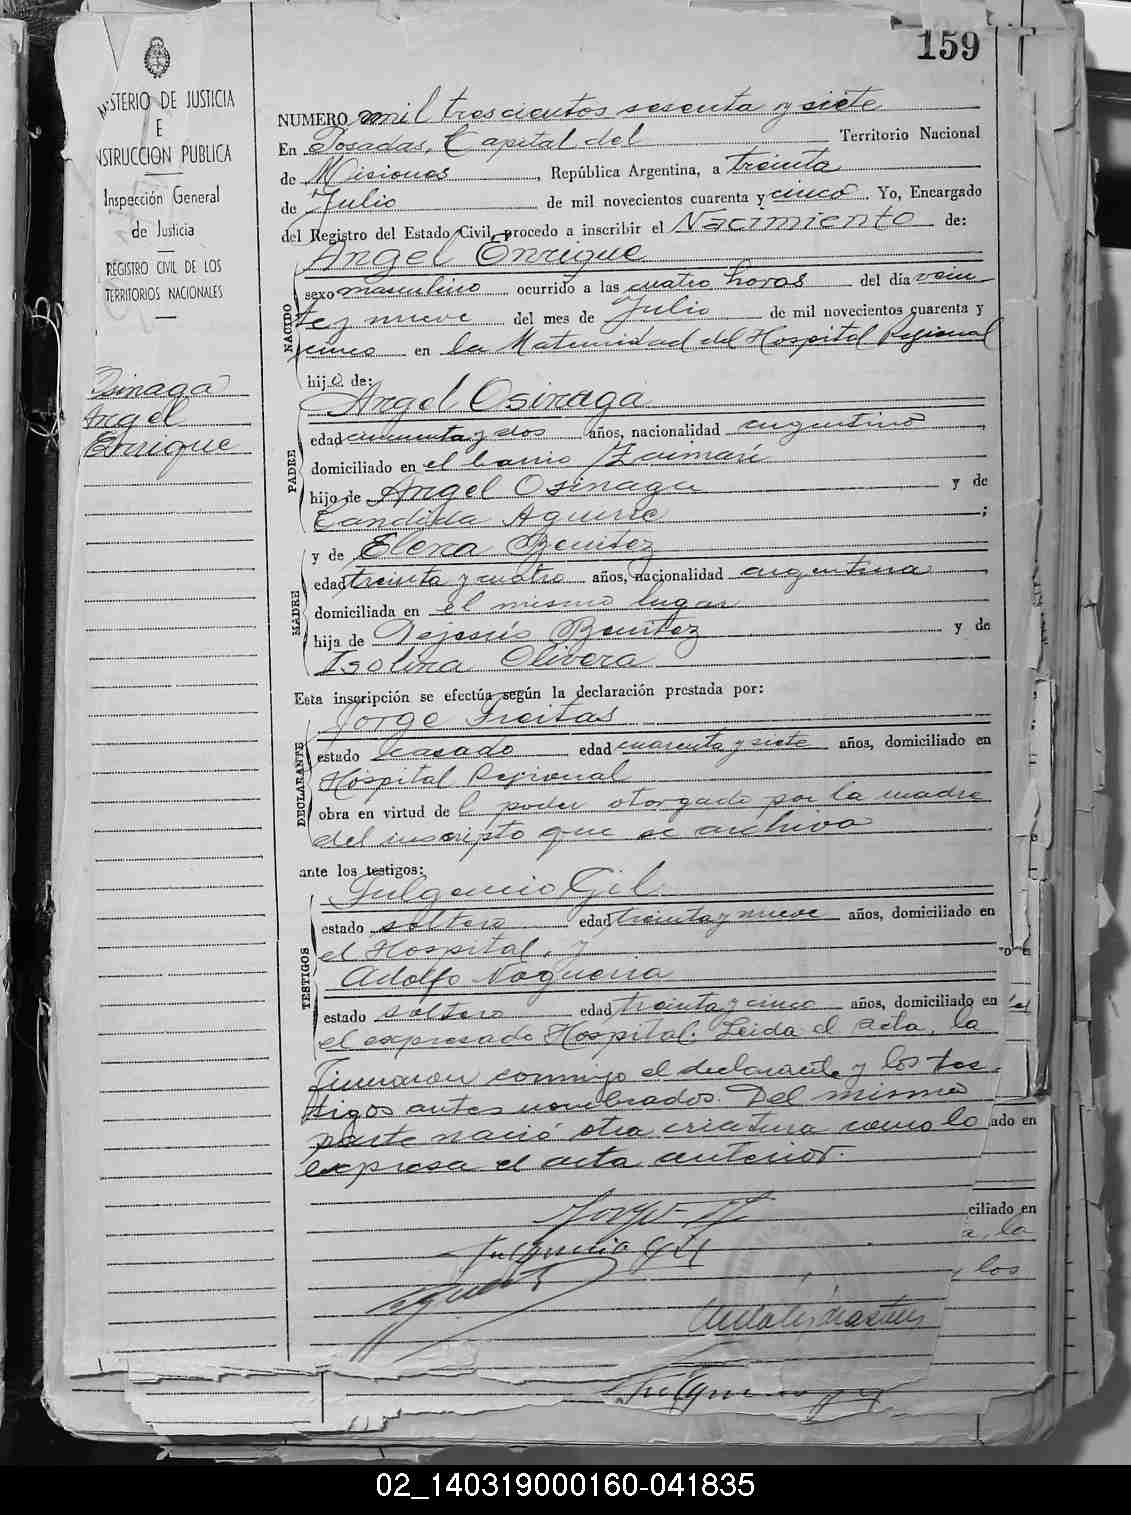 159
MINISTERIO DE JUSTICIA
E
INSTRUCCION PUBLICA
Inspección General
de Justicia
REGISTRO CIVIL DE LOS
TERRITORIOS NACIONALES
Osinaga
Angel
Enrique
NUMERO mil trescientos sesenta y siete
En Posadas, Capital del Territorio Nacional
de Misiones, República Argentina, a treinta
de Julio de mil novecientos cuarenta y cinco. Yo, Encargado
del Registro del Estado Civil, procedo a inscribir el Nacimiento de:
NACIDO
Angel Enrique
sexo masculino ocurrido a las cuatro horas del día vein
te y nueve del mes de Julio de mil novecientos cuarenta y
cinco en la Maternidad del Hospital Regional
hijo de:
PADRE
Angel Osinaga
edad cincuenta y dos años, nacionalidad argentino,
domiciliado en el barrio Zaimán
hijo de Angel Osinaga y de
Candida Aguirre;
MADRE
y de Elena Benitez
edad treinta y cuatro años, nacionalidad argentina,
domiciliada en el mismo lugar
hija de Benitez y de
Isolina Olivera
Esta inscripción se efectúa según la declaración prestada por:
DECLARANTE
Jorge Freitas
estado casado edad cuarenta y siete años, domiciliado en
Hospital Regional
obra en virtud de poder otorgado por la madre
del inscripto que se archiva
ante los testigos:
TESTIGOS
Fulgencio Gil
estado soltero edad treinta y nueve años, domiciliado en
el Hospital, y
Adolfo Nogueira
estado soltero edad treinta y cinco años, domiciliado en
el expresado Hospital. Leida el acta, la
firmaron conmigo el declarante y los tes-
tigos antes nombrados. Del mismo
parto nació otra criatura como lo
expresa el acta anterior.
ado en
ciliado en
la
los
Fulgencio Gil
02_140319000160-041835